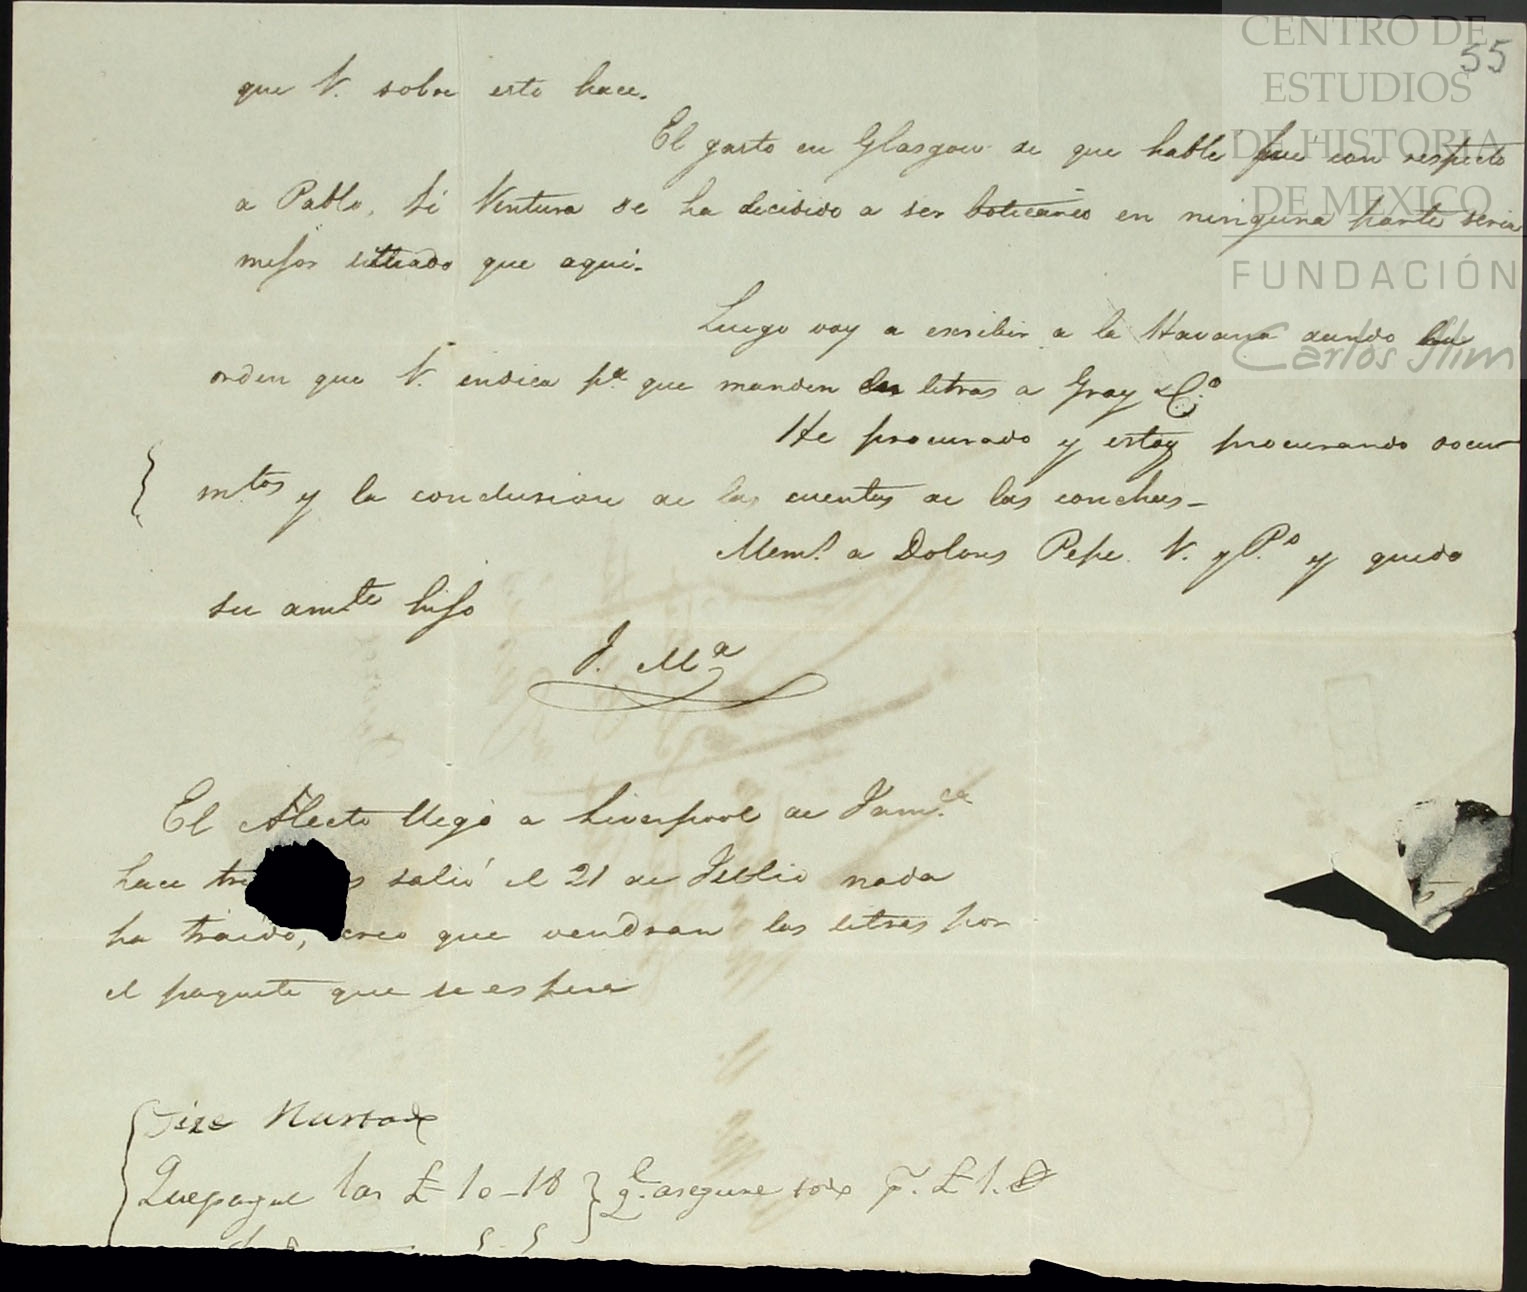 55
que V. sobre esto hace.
El gasto en Glasgow de que hablé fue con respecto
a Pablo, si Ventura se ha decidido a ser boticario en ninguna parte seria
mejor situado que aqui.
Luego voy a escribir a la Havana dando la
orden que V. indica pa. que manden las letras a Gray & Co
He procurado y estoy procurando docu
mtos y la conclusion de las cuentas de las conchas -
Mems. a Dolores Pepe V. y Po y quedo
su amte hijo
J. Ma
El Alecto llegó a Liverpool de Jamca
hace salió el 21 de Julio nada
ha traido, creo que vendran las letras por
el paquete que se espera
Que pague las £ 10-18 } q. asegure £ 1.
CENTRO DE
ESTUDIOS
DE HISTORIA
DE MEXICO
FUNDACIÓN
Carlos Slim